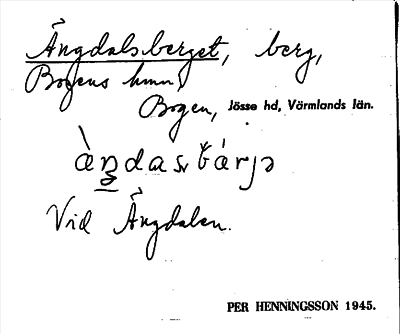 Ängdalsberget, berg,
Bogens hmn,
Bogen, Jösse hd, Värmlands län.
Vid Ängdalen.
PER HENNINGSSON 1945.